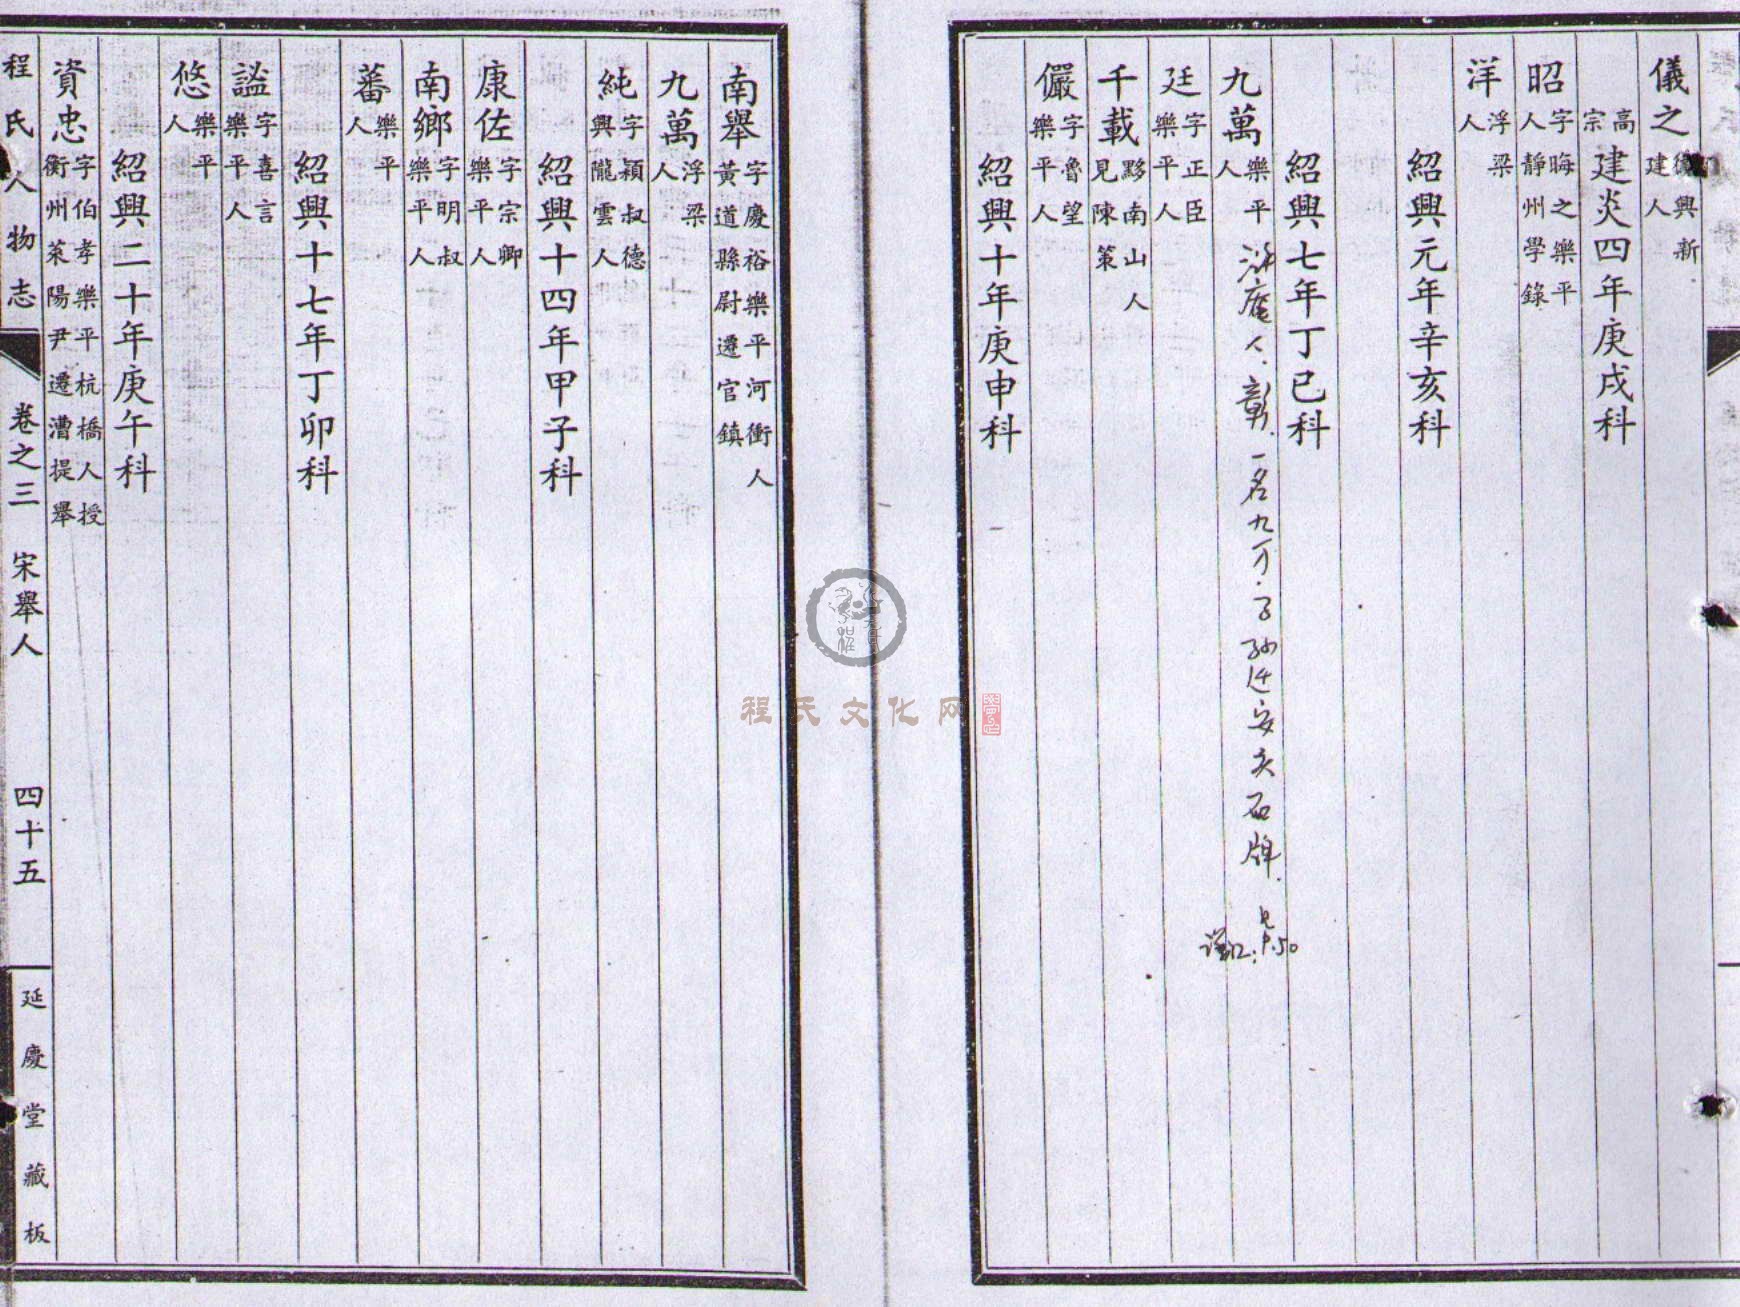 儀之 興新建人
高宗建炎四年庚戌科
昭 字晦之樂平人靜州學錄
洋 浮梁人
紹興元年辛亥科
紹興七年丁巳科
九萬 樂平人
一名九万子孙迁安庆石牌
P.50
廷 字正臣樂平人
千載 黟南山人見陳策
儼 字魯望樂平人
紹興十年庚申科
南舉 字慶裕樂平河衝人黃道縣尉遷官鎮
九萬 浮梁人
純 字穎叔德興隴雲人
紹興十四年甲子科
康佐 字宗卿樂平人
南鄉 字明叔樂平人
蕃 樂平人
紹興十七年丁卯科
謐 字喜言樂平人
悠 樂平人
紹興二十年庚午科
資忠 字伯孝樂平杭橋人授衡州萊陽尹遷漕提舉
程氏人物志 卷之三 宋舉人 四十五 延慶堂藏板
程氏文化网